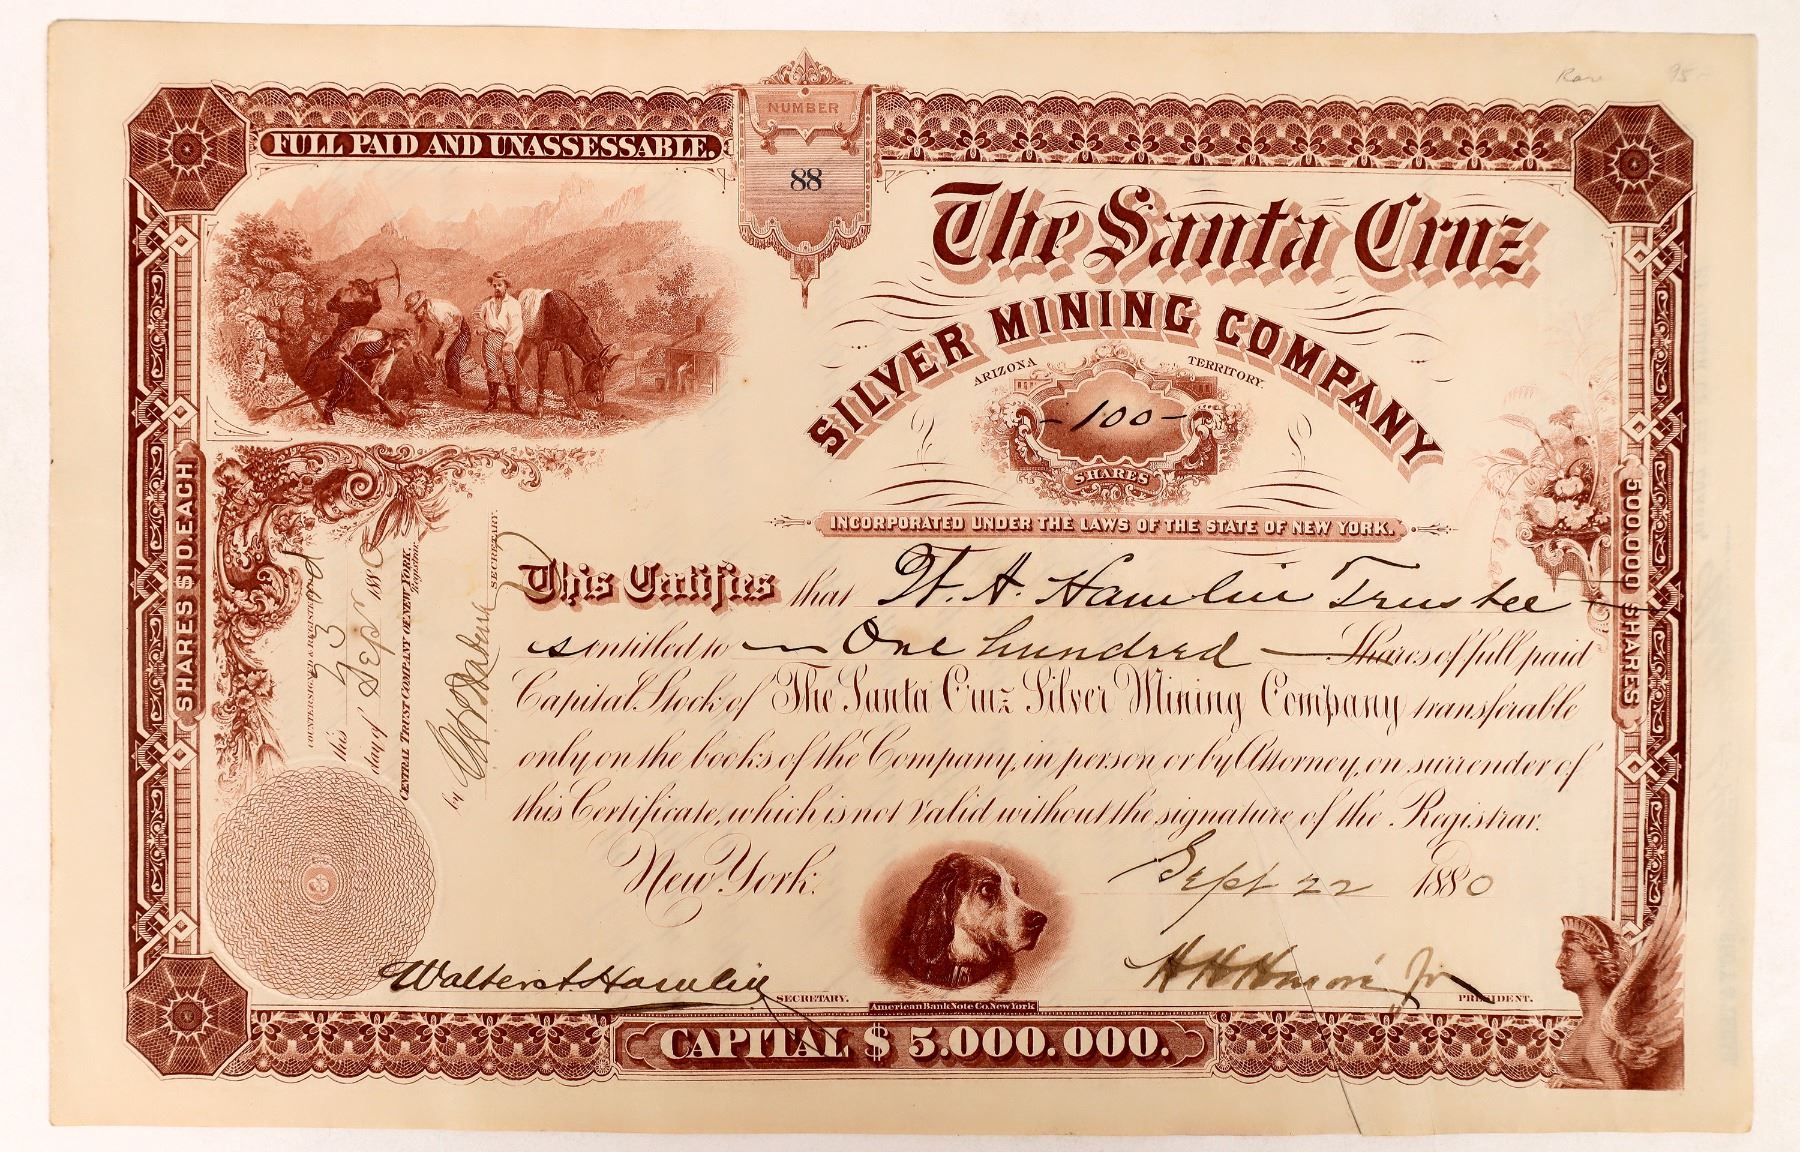 Rare 95-
NUMBER
88
FULL PAID AND UNASSESSABLE.
The Santa Cruz
SILVER MINING COMPANY
ARIZONA TERRITORY.
-100-
SHARES
INCORPORATED UNDER THE LAWS OF THE STATE OF NEW YORK.
SHARES $10. EACH
500,000 SHARES
this 23
day of Sep 1880
CENTRAL TRUST COMPANY OF NEW YORK.
Registrar.
by
SECRETARY.
This Certifies that W. A. Hamlin Trustee
is entitled to One hundred Shares of full paid
Capital Stock of The Santa Cruz Silver Mining Company transferable
only on the books of the Company, in person or by Attorney, on surrender of
this Certificate, which is not valid without the signature of the Registrar.
New York. Sept 22 1880
Walter S Hamlin SECRETARY.
PRESIDENT.
American Bank Note Co. New York
CAPITAL $ 5.000.000.